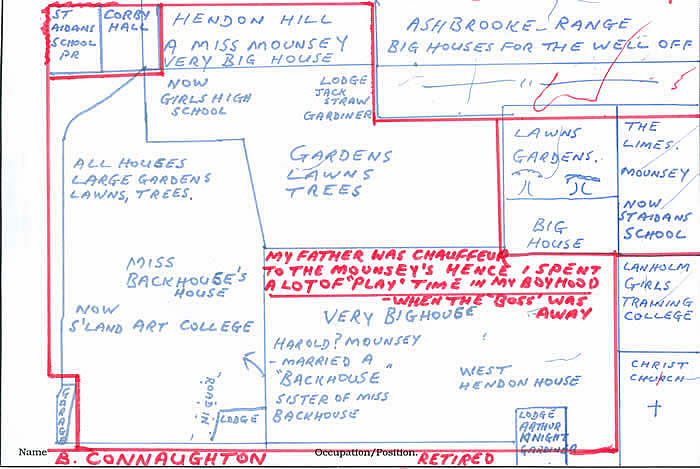 ST
AIDANS
SCHOOL
PR
CORBY
HALL
HENDON HILL
A MISS MOUNSEY
VERY BIG HOUSE
ASHBROOKE - RANGE
BIG HOUSES FOR THE WELL OFF
NOW
GIRLS HIGH
SCHOOL
LODGE
JACK
STRAW
GARDINER
GARDENS
LAWNS
TREES
LAWNS
GARDENS.
BIG
HOUSE
THE
LIMES.
MOUNSEY
NOW
ST AIDANS
SCHOOL
ALL HOUSES
LARGE GARDENS
LAWNS, TREES.
MISS
BACKHOUSE'S
HOUSE
NOW
S'LAND ART COLLEGE
MY FATHER WAS CHAUFFEUR
TO THE MOUNSEY'S HENCE I SPENT
A LOT OF "PLAY" TIME IN MY BOYHOOD
- WHEN THE "BOSS" WAS
AWAY
VERY BIG HOUSE
HAROLD? MOUNSEY
- MARRIED A
"BACKHOUSE"
SISTER OF MISS
BACKHOUSE
WEST
HENDON HOUSE
LANHOLM
GIRLS
TRAINING
COLLEGE
CHRIST
CHURCH
GARAGE
ROAD IN
LODGE
LODGE
ARTHUR
KNIGHT
GARDINER
Name B. CONNAUGHTON Occupation/Position. RETIRED